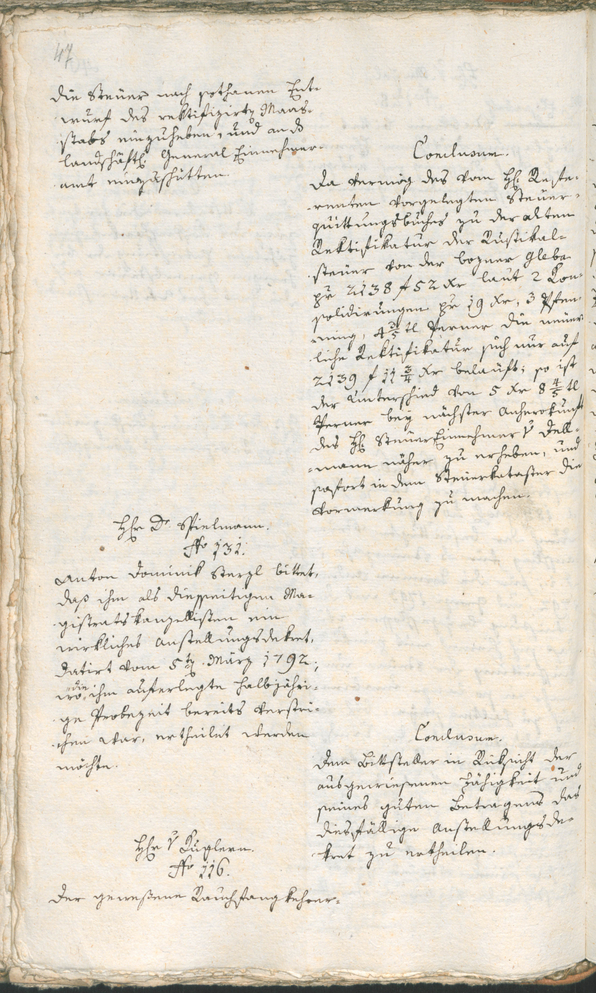 47
die Steuer nach gethanen Ent-
wurf des rektifizirten Maas-
stabs einzuheben, und an das
Landschäftl. General Einnehmer-
amt einzuschütten.
Conclusum.
Da vermög des vom H. Refe-
renten vorgelegten Steuer-
quittungsbuches zu der alten
Rektifikatur der Rustikal-
steuer von der bozner Glebe
pr 2138 f 52 Xr laut 2 Kon-
solidirungen pr 19 Xr, 3 Pfen-
ning, 4 3/5 tl Perner die neuer-
liche Rektifikatur sich nur auf
2139 f 11 3/4 Xr belauft; so ist
der Unterschied von 5 Xr 8 4/5 tl
Perner bey nächster Anherokunft
des H. SteuerEinnehmer v Dell-
mann näher zu erheben, und
sofort in dem Steuerkataster die
Vormerkung zu machen.
Hr Dr Spielmann.
No 131.
Anton Dominik Sterzl bittet,
daß ihm als diesseitigen Ma-
gistratskanzellisten ein
wirkliches Anstellungsdekret,
datirt vom 5ten März 1792,
wo die ihm auferlegte halbjähri-
ge Probezeit bereits verstri-
chen war, ertheilet werden
möchte.
Conclusum.
Dem Bittsteller in Rücksicht der
ausgewiesenen Fähigkeit und
seines guten Betragens das
diesfällige Anstellungsde-
kret zu ertheilen.
Hr v Zieglern.
No 116.
Der gewesene Rauchfangkehrer-